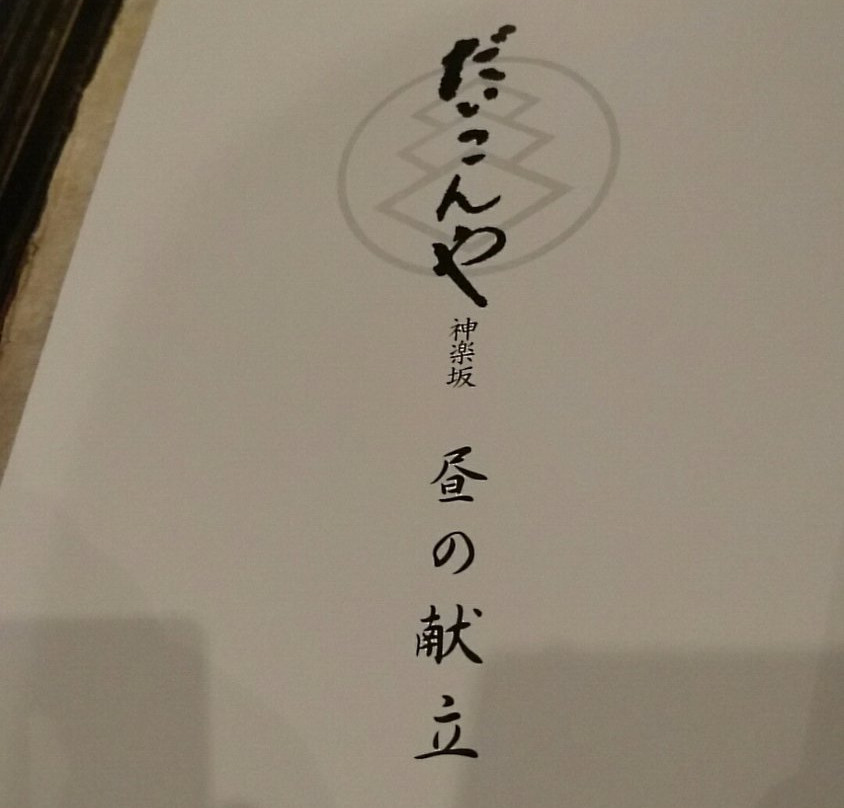 だいこんや
神楽坂
昼の献立